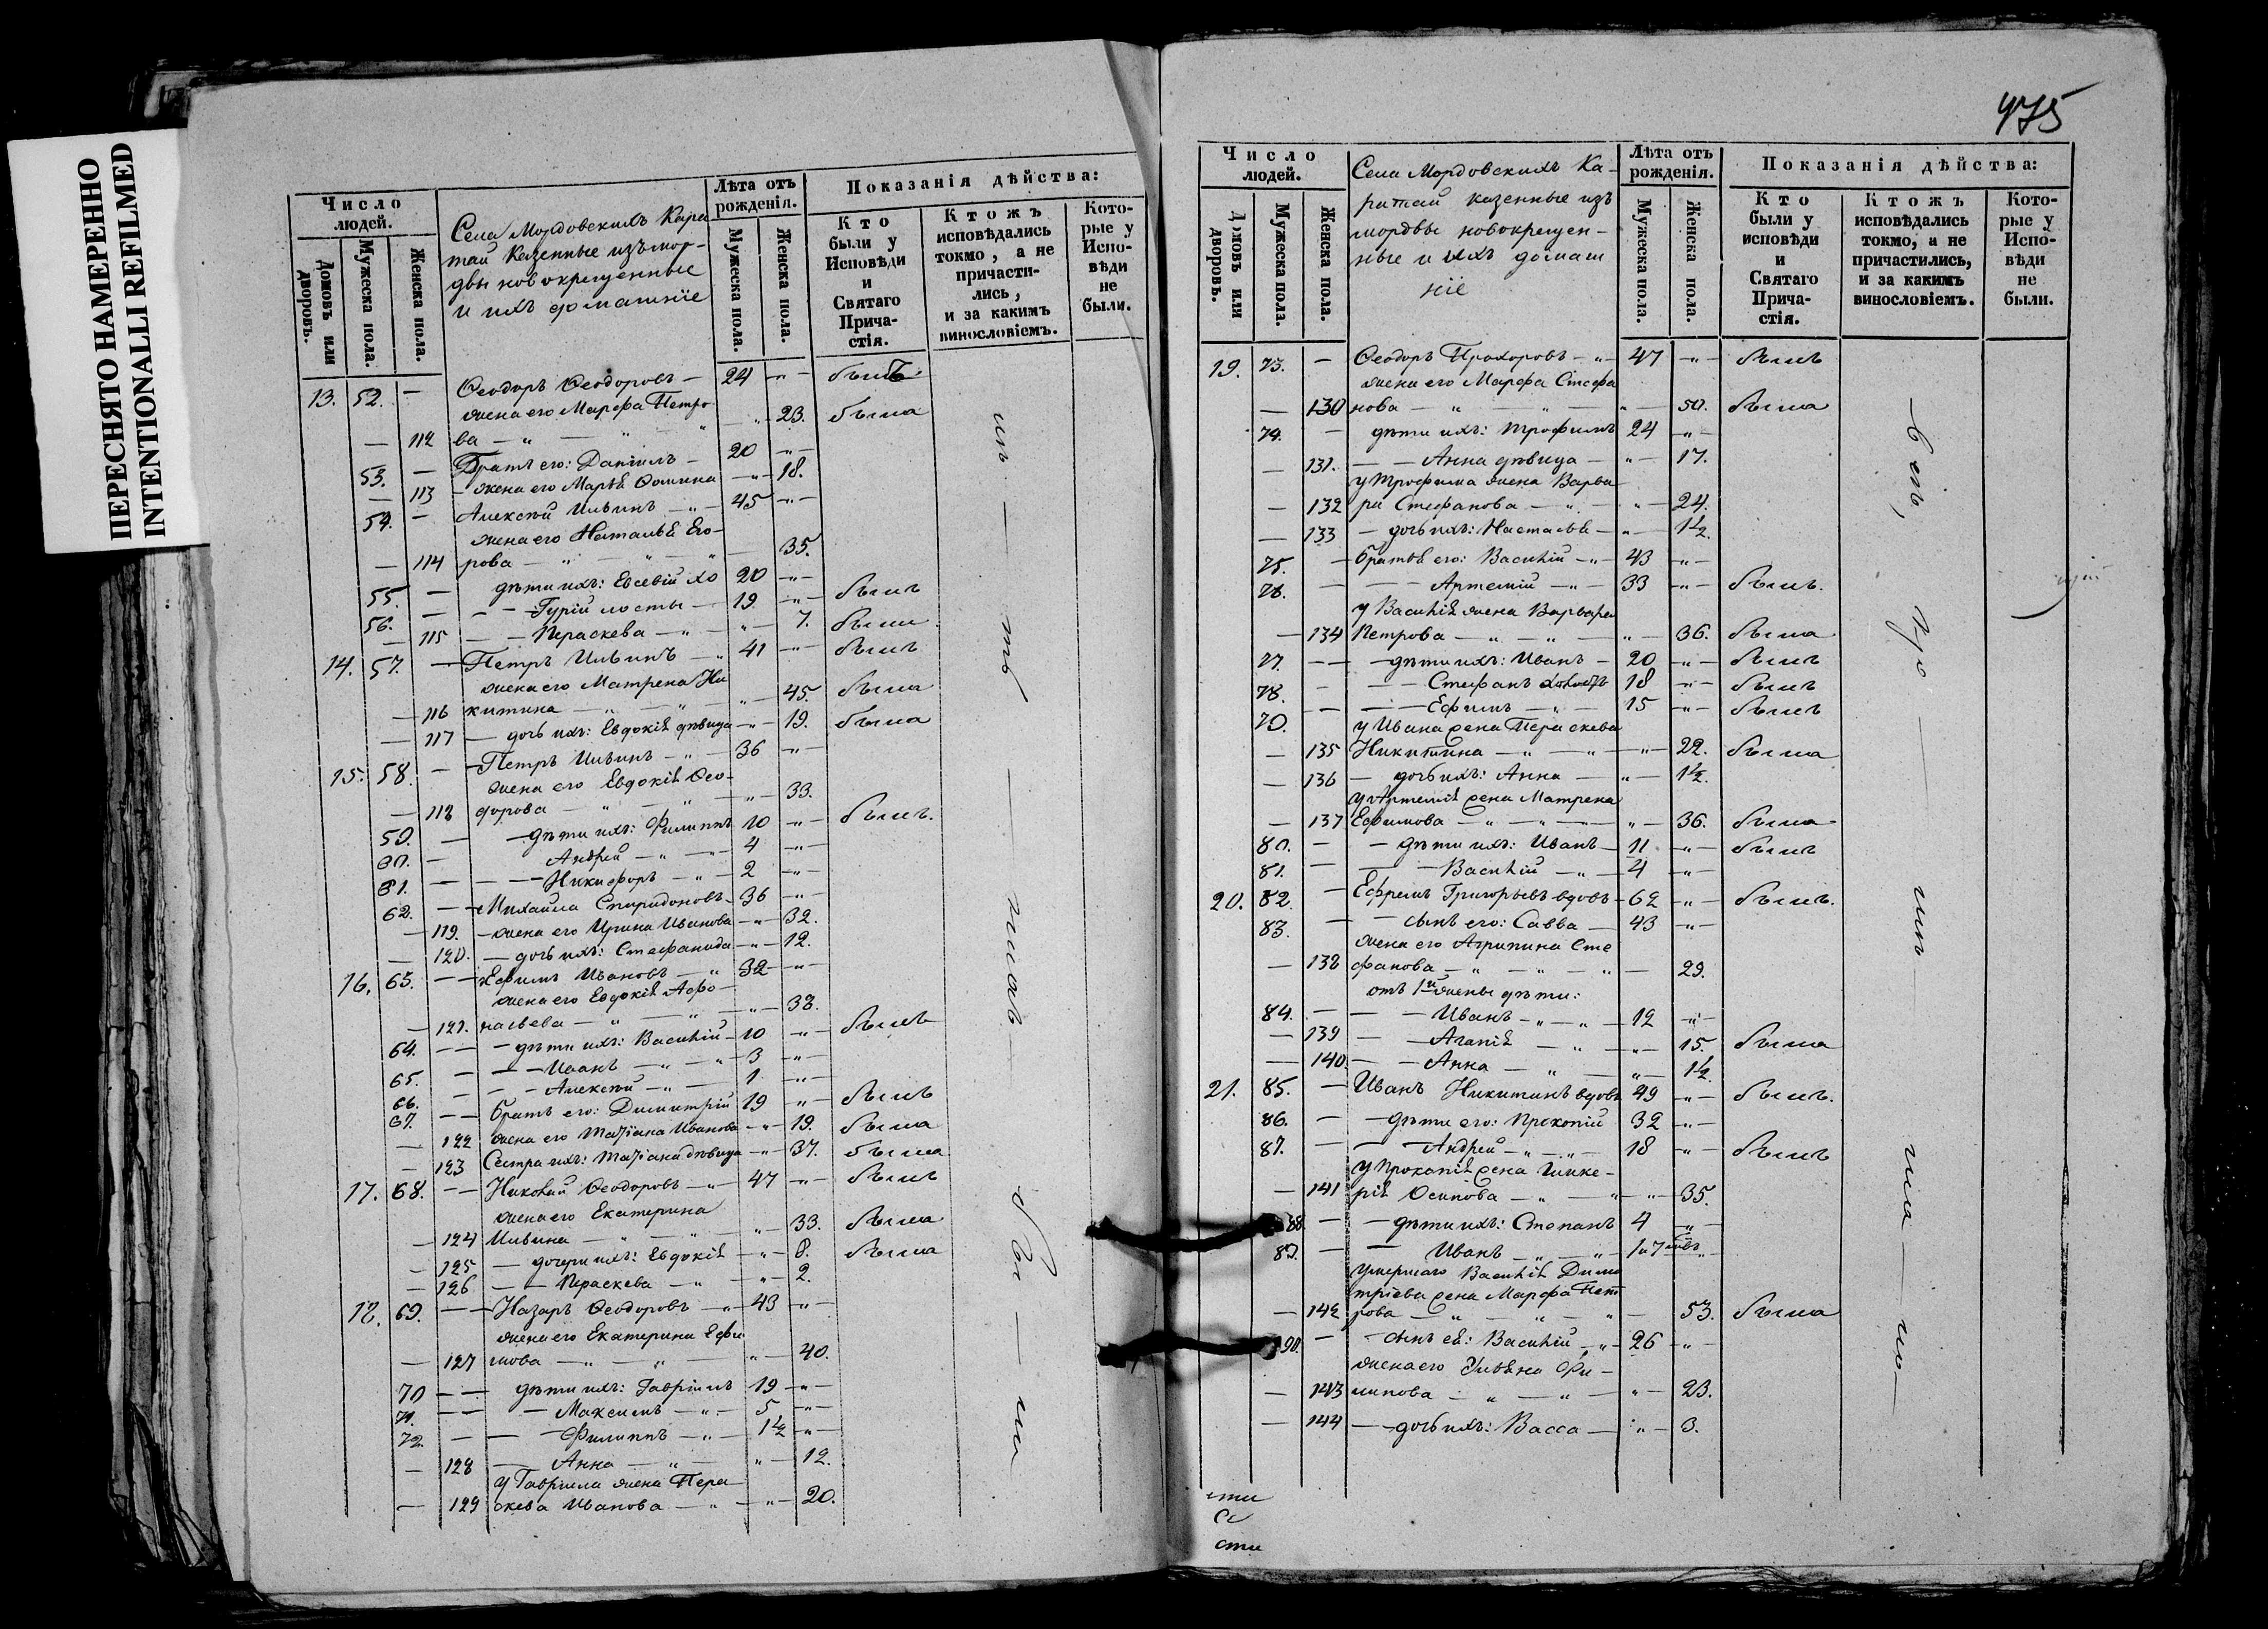 ПЕРЕСНЯТО НАМЕРЕННО
INTENTIONALLI REFILMED
Число людей.
Домовъ или дворовъ.
Мужеска пола.
Женска пола.
Села Мордовскихъ Кара
тай Казенные изъ мор-
двы новокрещенные
и ихъ домашнiе
Лѣта отъ рожденiя.
Мужеска пола.
Женска пола.
Показанiя дѣйства:
Кто были у Исповѣди и Святаго Причастiя.
Ктожъ исповѣдались токмо, а не причастились, и за какимъ винословiемъ.
Которые у Исповѣди не были.
13. 52. — Ѳеодоръ Ѳеодоровъ — 24 -"- былъ
жена его Марѳа Петро
— 112 ва — " — " -"- 23. была
53. — Братъ его: Данiилъ — 20 -"-
— 113 — жена его Марья Ѳомина -"- 18.
54. — Алексѣй Ильинъ -"- 45 -"-
жена его Наталья Его-
— 114 рова — " — " — 35.
55. — дѣти ихъ: Евсевiй хо 20 -"-
56. — — Гурiй лосты — 19. -"- былъ
— 115 — — Параскева -"- -"- 7. были
14. 57. — Петръ Ильинъ -"- 41 -"- былъ
жена его Матрена Ни
— 116 китина — " — " -"- 45. была
— 117 — дочь ихъ: Евдокiя дѣвица -"- 19. была
15. 58. — Петръ Ильинъ -"- 36 -"-
жена его Евдокiя Ѳео-
— 118 дорова — " — " -"- 33.
59. — — дѣти ихъ: Филиппъ 10 -"- былъ.
60. — Андрей -"- 4 -"-
61. — — — Никифоръ -"- 2 -"-
62. — — Михайла Спиридоновъ — 36 -"-
— 119. — жена его Ирина Иванова -"- 32.
— 120. — дочь ихъ: Стефанида -"- 12.
16. 63. — — Ефимъ Ивановъ -"- 32 -"-
жена его Евдокiя Аѳо-
— 121. насьева — " — " -"- 38.
64. — — — дѣти ихъ: Василiй — 10 -"- былъ
65. — — — Иванъ -"- 3 -"-
66. — — — Алексѣй -"- 1. -"-
67. — — братъ его: Димитрiй 19 -"- былъ
— 122 жена его Татiана Иванова -"- 19. была
— 123 Сестра ихъ: Татiана дѣвица -"- 37. была
17. 68. — — Николай Ѳеодоровъ -"- 47 -"- былъ
жена его Екатерина
— 124 Ильина — " — " -"- 33. была
— 125 — дочери ихъ: Евдокiя -"- 8. была
— 126 — — Параскева -"- -"- 2.
18. 69. — — Назаръ Ѳеодоровъ -"- 43 -"-
жена его Екатерина Ефи
— 127 мова -"- " — -"- 40.
70 — — дѣти ихъ: Гаврiилъ 19 -"-
71. — — — Максимъ -"- 5 -"-
72. — — — Филиппъ -"- 1½ -"-
— 128 — Анна -"- -"- 12.
у Гаврiила жена Пара-
— 129 скева Иванова -"- -"- 20.
475
Число людей.
Домовъ или дворовъ.
Мужеска пола.
Женска пола.
Села Мордовскихъ Ка-
ратай казенные изъ
мордвы новокрещен-
ные и ихъ домаш
нiе
Лѣта отъ рожденiя.
Мужеска пола.
Женска пола.
Показанiя дѣйства:
Кто были у исповѣди и Святаго Причастiя.
Ктожъ исповѣдались токмо, а не причастились, и за какимъ винословiемъ.
Которые у Исповѣди не были.
19. 73. — Ѳеодоръ Прохоровъ -"- 47 -"- былъ
жена его Марѳа Стефа
— 130 нова — " — " -"- 50. была
74. — дѣти ихъ: Трофимъ 24 -"-
— 131. — — Анна дѣвица — -"- 17.
у Трофима жена Варва
— 132 ра Стефанова -"- -"- 24.
— 133 — дочь ихъ: Настасья -"- 1½.
75. — братья его: Василiй -"- 43 -"-
76. — — — Артемiй -"- 33 -"- былъ.
у Василiя жена Варвара
— 134 Петрова -"- -"- -"- 36. была
77. — — — дѣти ихъ: Иванъ — 20 -"- былъ
78. — — — Стефанъ холостъ 18 -"- былъ
79. — — — Ефимъ -"- 15 -"- былъ
у Ивана жена Параскева
— 135 Никитина -"- -"- -"- 22. была
— 136 — дочь ихъ: Анна — -"- 1½.
у Артемiя жена Матрена
— 137 Ефимова -"- -"- -"- 36. была
80. — — дѣти ихъ: Иванъ — 11 -"- былъ
81. — — — Василiй -"- 4 -"-
20. 82. — Ефремъ Григорьевъ вдовъ 62 -"- былъ.
83. — — сынъ его: Савва — 43 -"-
жена его Агрипина Сте
— 138 фанова -"- -"- " — 29.
отъ 1й жены дѣти:
84. — — — Иванъ -"- 12 -"-
— 139 — — Агапiя -"- -"- 15. была
— 140. — — Анна -"- -"- 1½.
21. 85. — Иванъ Никитинъ вдовъ 49 -"- былъ.
86. — — дѣти его: Прокопiй 32 -"-
87. — — Андрей -"- 18 -"- былъ
у Прокопiя жена Глике-
— 141 рiя Осипова -"- -"- 35.
88. — — дѣти ихъ: Степанъ 4 -"-
89. — — Иванъ -"- 1 и 7 мѣс.
умершаго Василiя Дими
трiева жена Марѳа Пет
— 142 рова -"- " — 53. была
90. — — сынъ ея: Василiй -"- 26 -"-
жена его Ульяна Фи-
— 143 липова — " — " -"- 23.
— 144 — — дочь ихъ: Васса — -"- 3.
сти